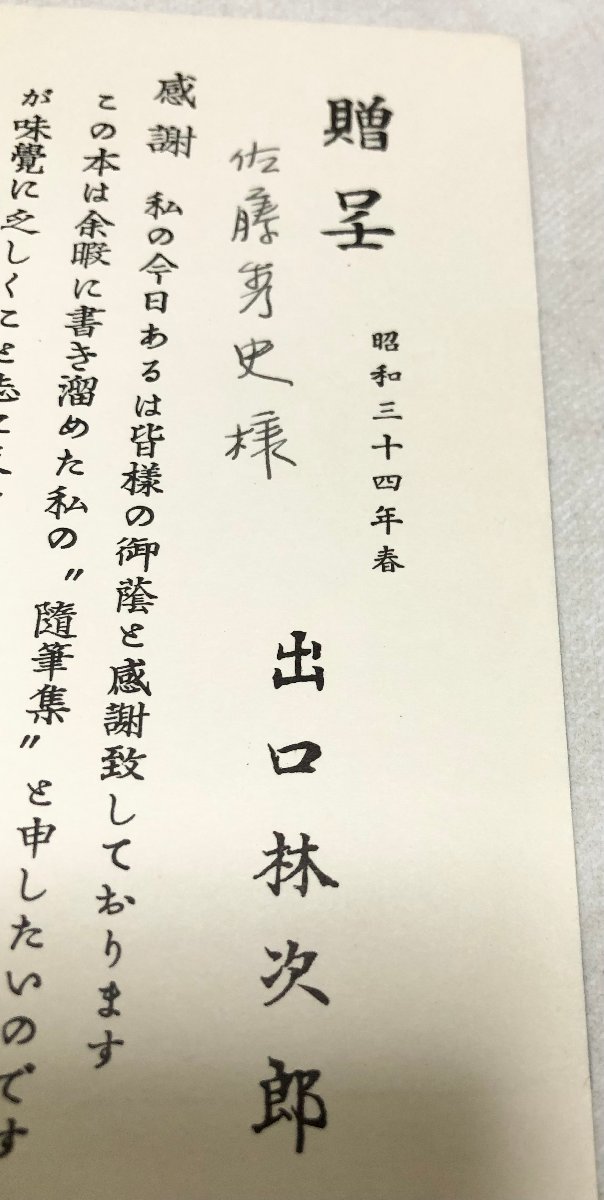 贈呈
昭和三十四年春
佐藤秀史様
出口林次郎
感謝 私の今日あるは皆様の御蔭と感謝致しております
この本は余暇に書き溜めた私の〃随筆集〃と申したいのです
が味覺に乏しくこと志に